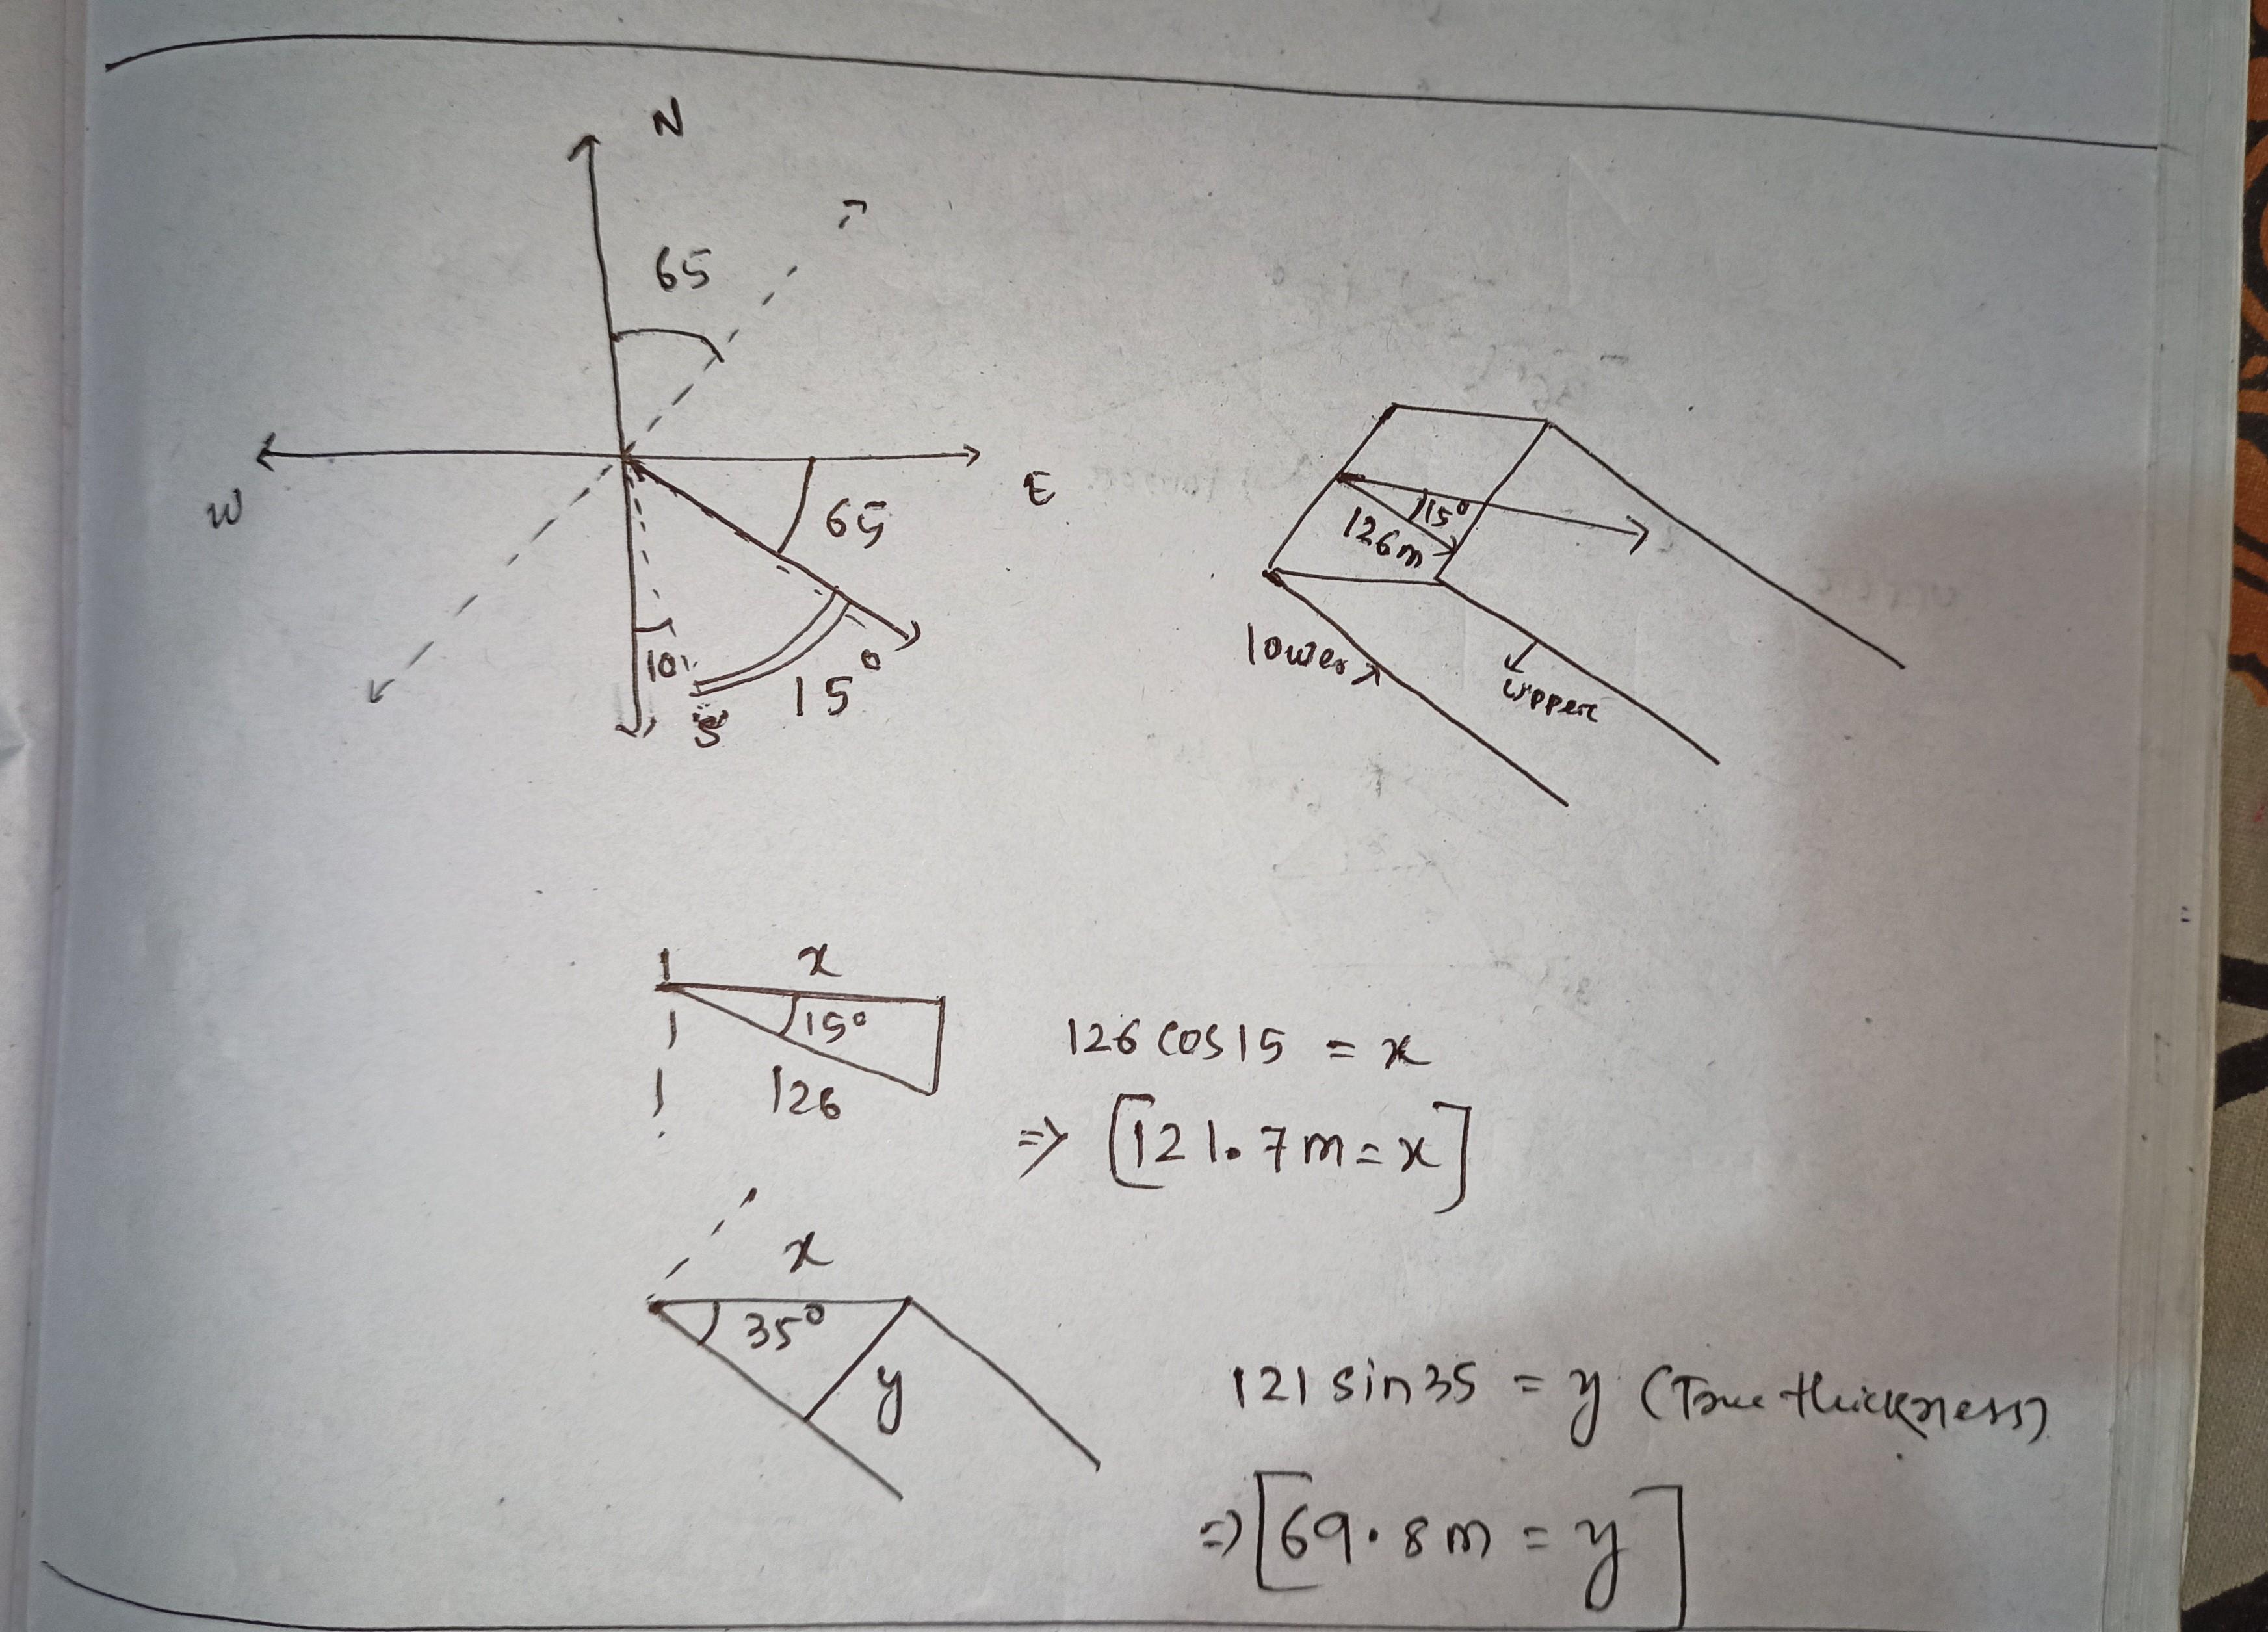 N
65
W
E
65
10
S
15°
15°
126m
lower
upper
x
15°
126
126 cos 15 = x
⇒ [121.7m = x]
x
35°
y
121 sin 35 = y (True thickness)
⇒ [69.8m = y]